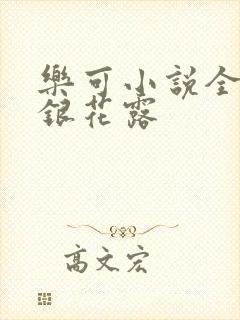 樂可小説全
銀花露
高文宏